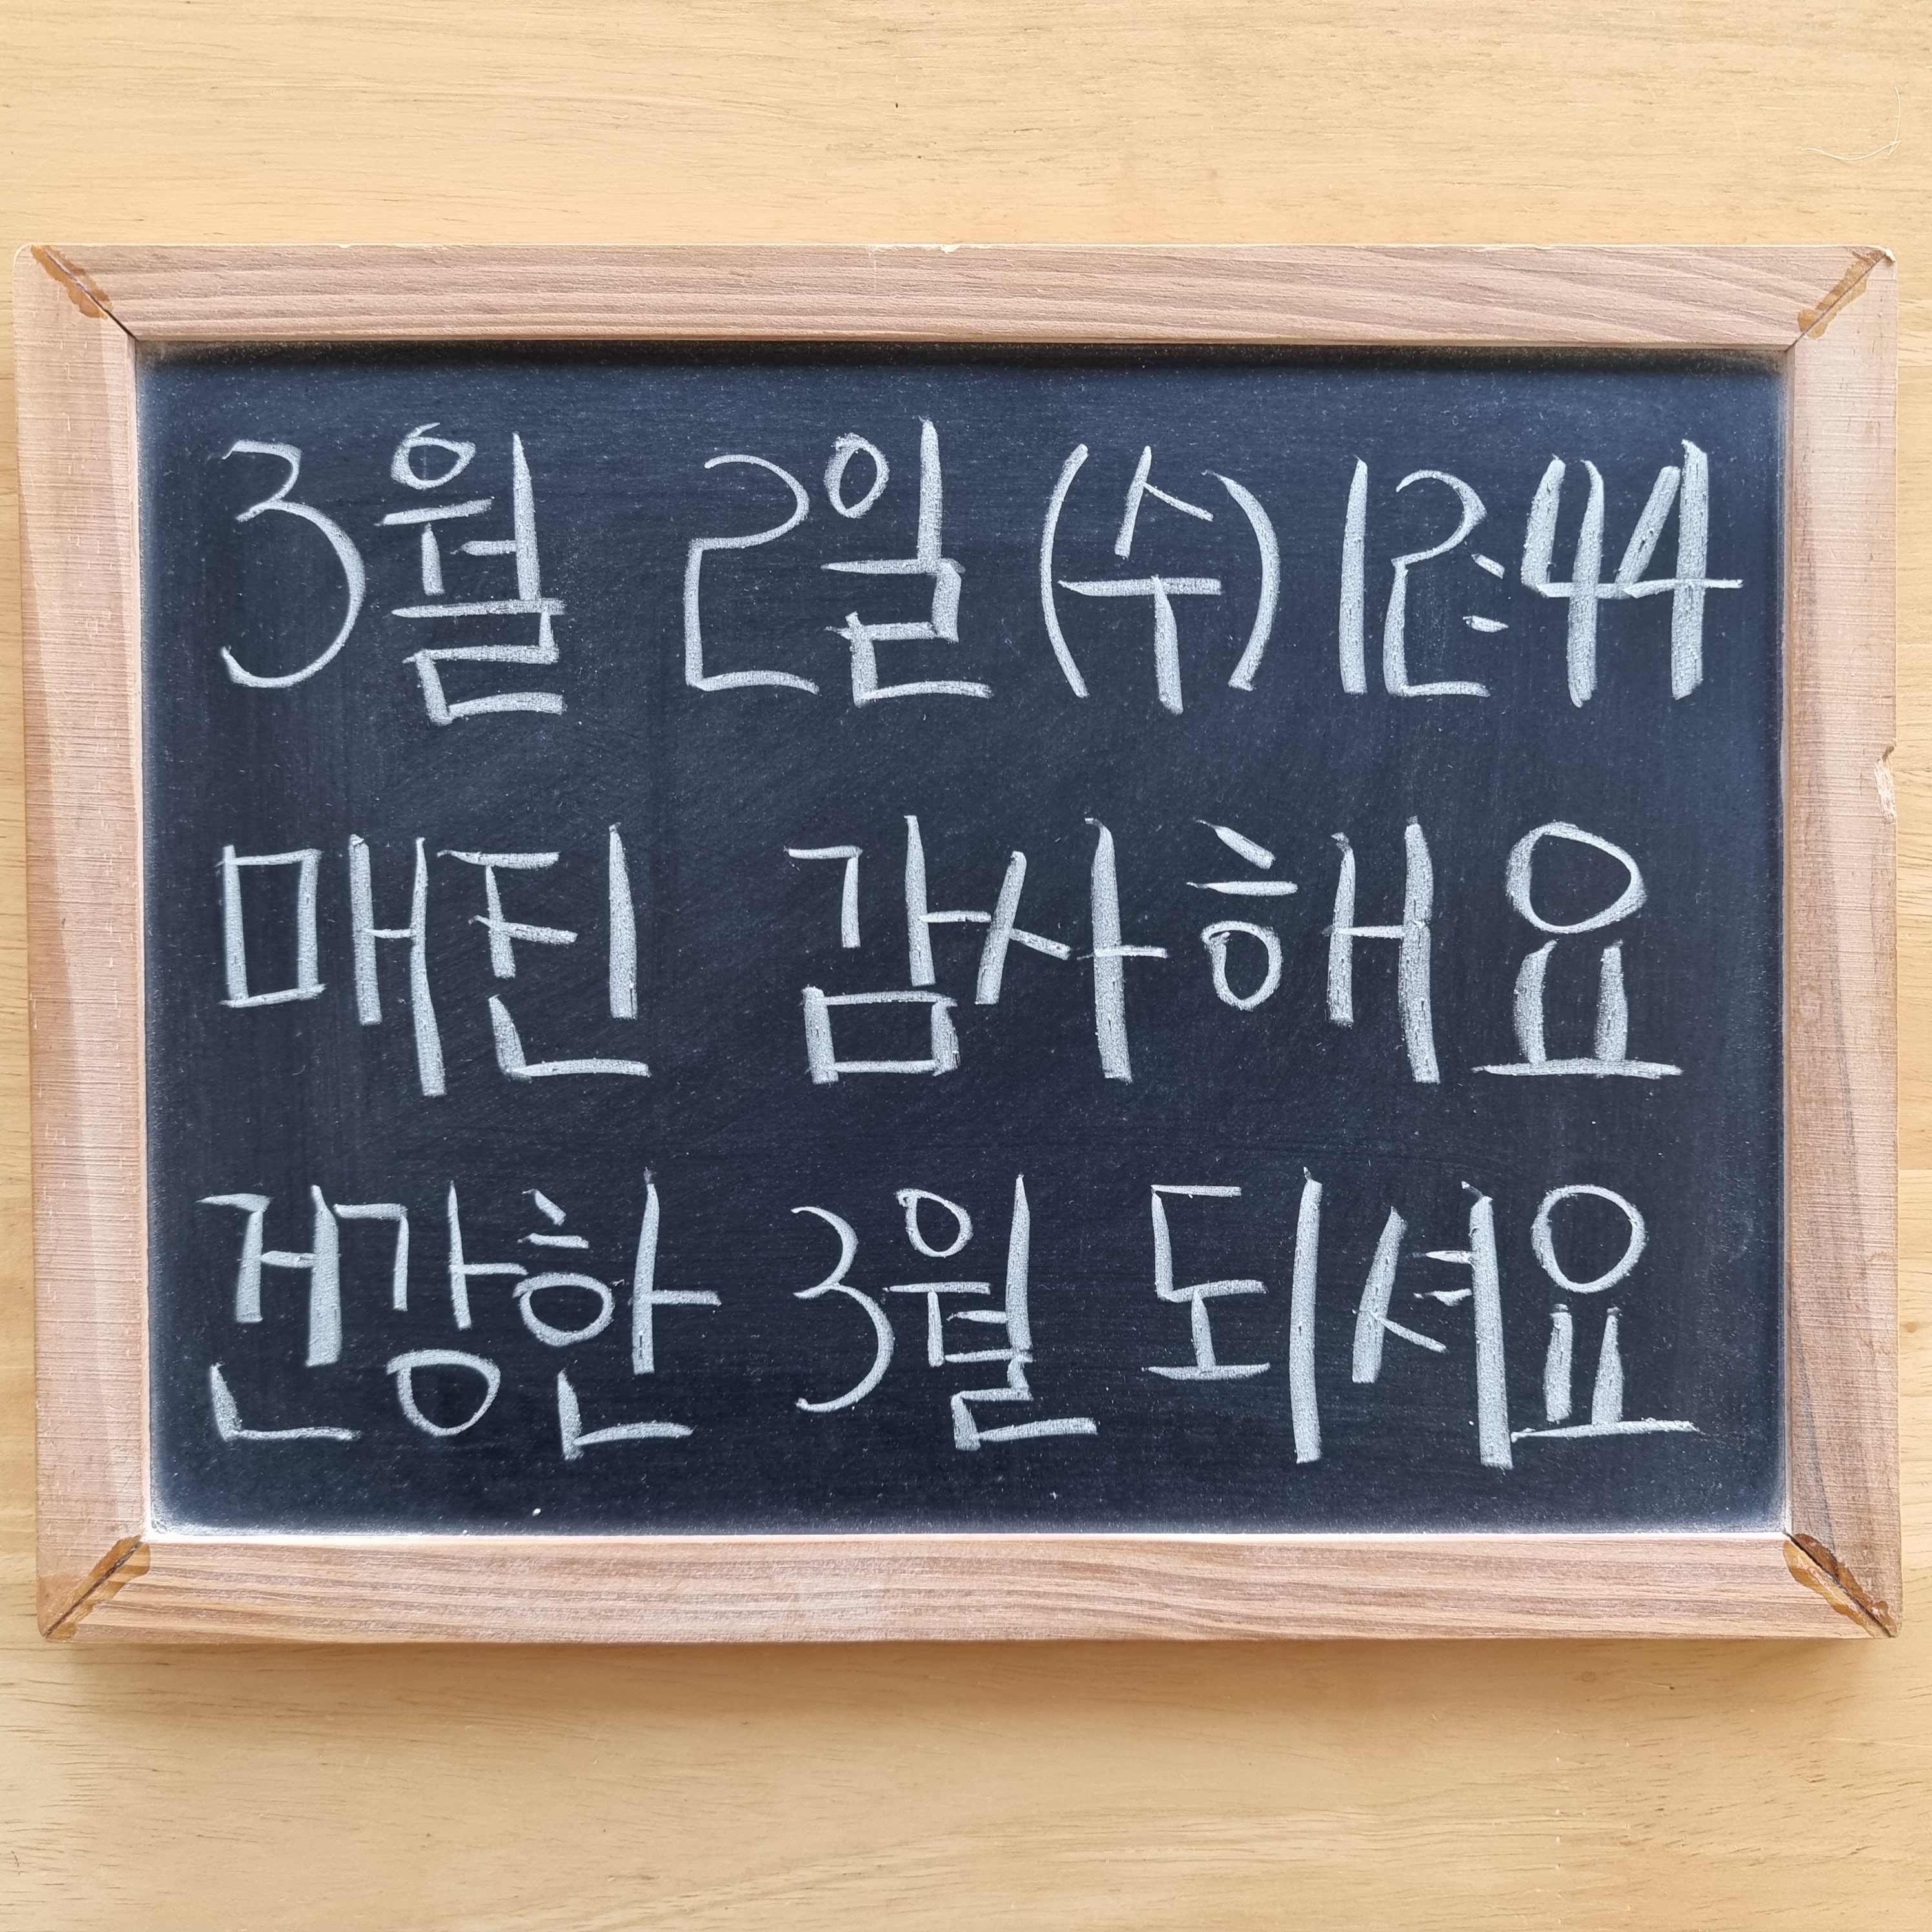 3월 2일(수) 12:44
매진 감사해요
건강한 3월 되셔요